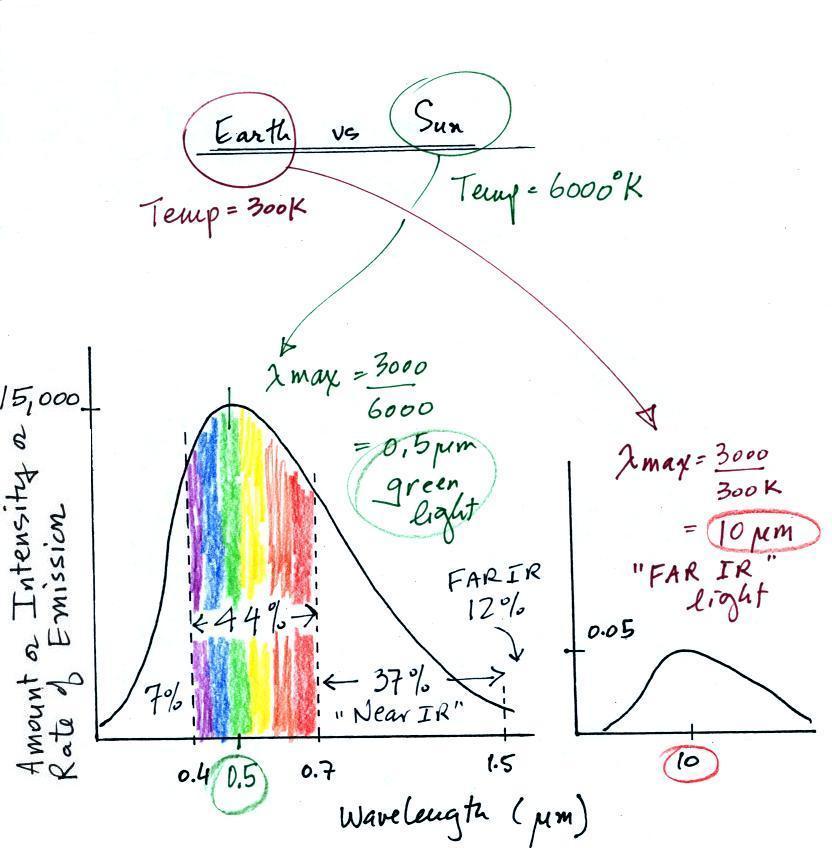 Earth vs Sun
Temp = 300K
Temp = 6000°K
λmax = 3000
6000
= 0.5 μm
green
light
15,000
Amount or Intensity or
Rate of Emission
7%
44%
37%
"Near IR"
FAR IR
12%
0.4
0.5
0.7
1.5
Wavelength (μm)
λmax = 3000
300K
= 10 μm
"FAR IR"
light
0.05
10